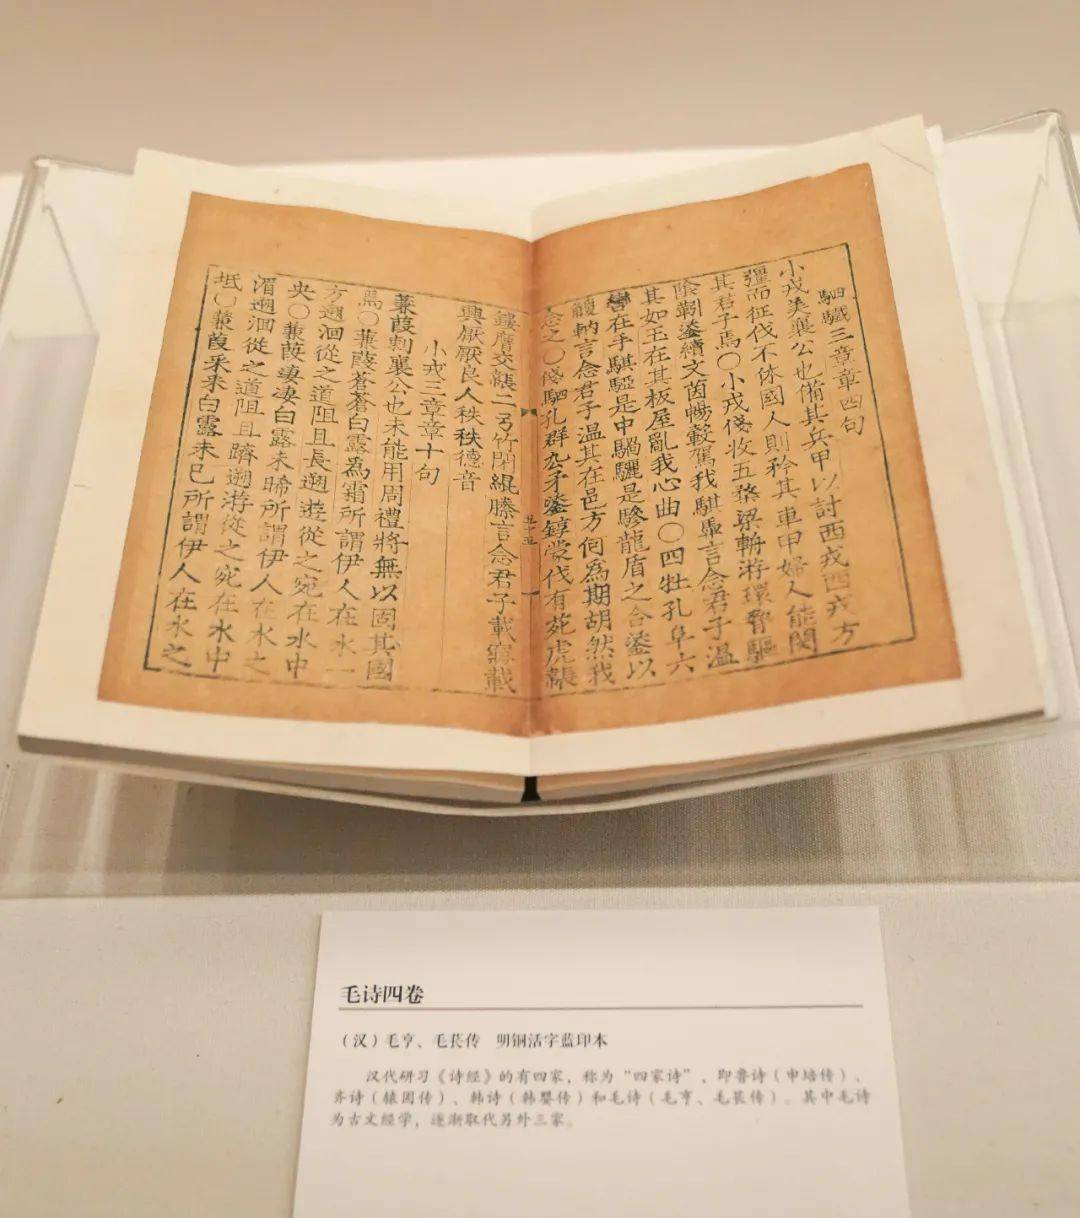 駟驖三章章四句
小戎美襄公也備其兵甲以討西戎西戎方
彊而征伐不休國人則矜其車甲婦人能閔
其君子焉〇小戎俴收五楘梁輈游環脅驅
陰靷鋈續文茵暢轂駕我騏馵言念君子溫
其如玉在其板屋亂我心曲〇四牡孔阜六
轡在手騏駵是中騧驪是驂龍盾之合鋈以
觼軜言念君子溫其在邑方何為期胡然我
念之〇俴駟孔群厹矛鋈錞蒙伐有苑虎韔
鏤膺交韔二弓竹閉緄縢言念君子載寢載
興厭厭良人秩秩德音
小戎三章章十句
蒹葭刺襄公也未能用周禮將無以固其國
焉〇蒹葭蒼蒼白露為霜所謂伊人在水一
方遡洄從之道阻且長遡遊從之宛在水中
央〇蒹葭淒淒白露未晞所謂伊人在水之
湄遡洄從之道阻且躋遡游從之宛在水中
坻〇蒹葭采采白露未已所謂伊人在水之
毛诗四卷
（汉）毛亨、毛苌传　明铜活字蓝印本
汉代研习《诗经》的有四家，称为“四家诗”，即鲁诗（申培传）、
齐诗（辕固传）、韩诗（韩婴传）和毛诗（毛亨、毛苌传）。其中毛诗
为古文经学，逐渐取代另外三家。